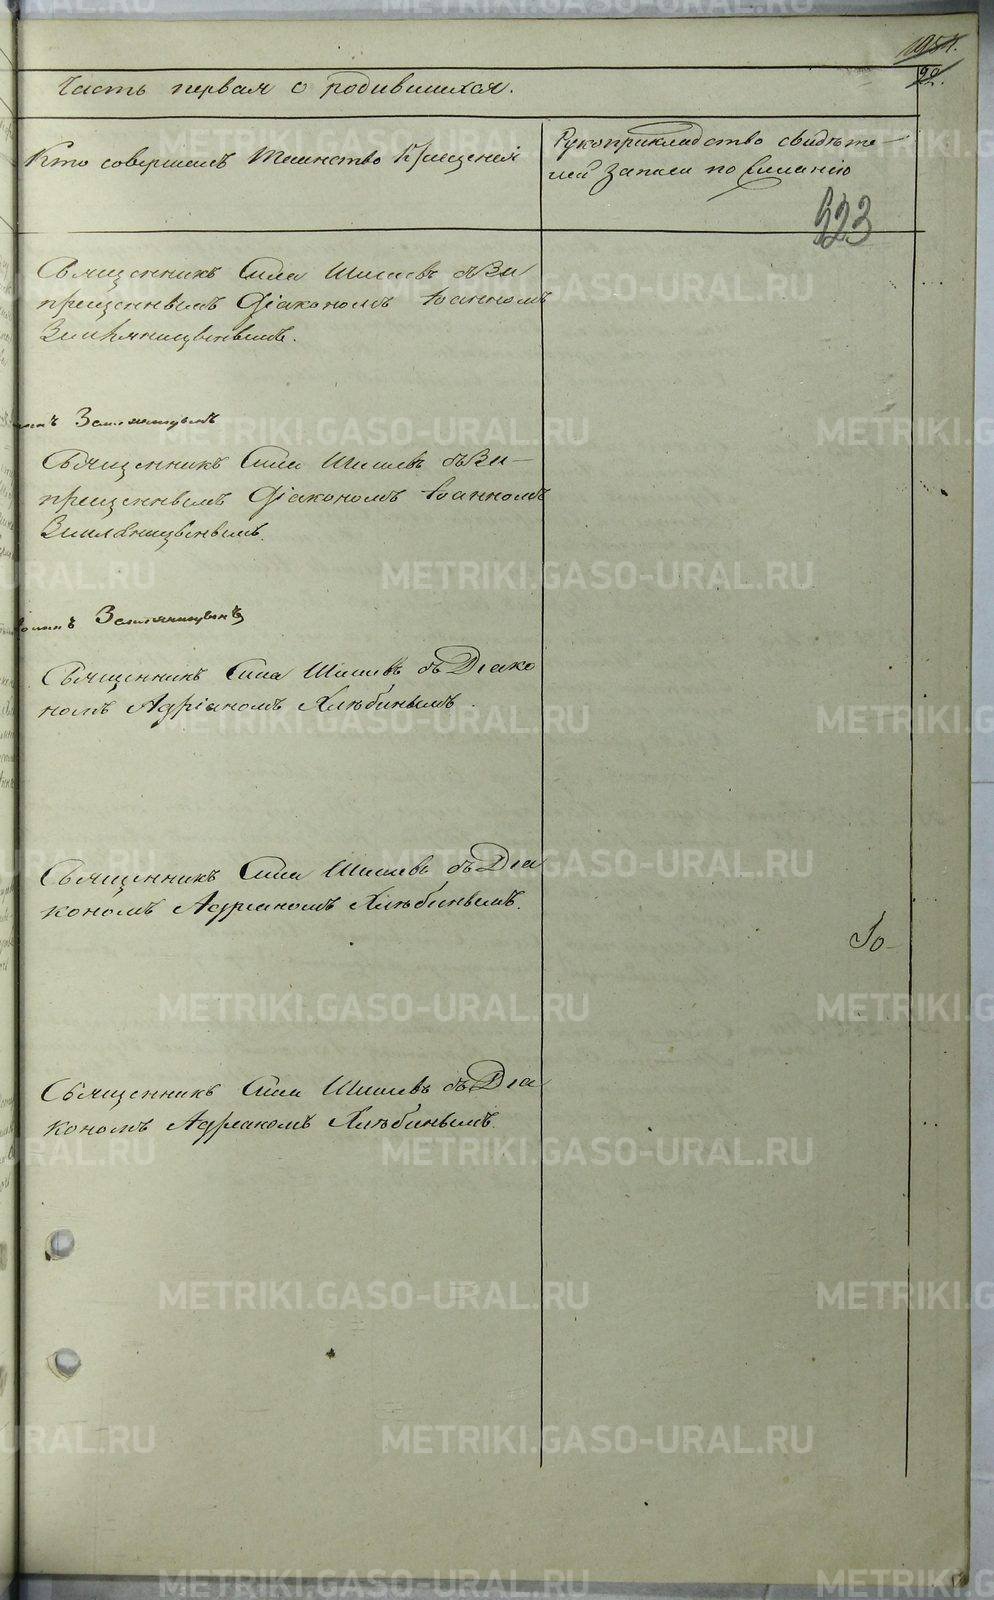 1054.
92.
Часть первая о родившихся.
Кто совершалъ Таинство Крещенія
Рукоприкладство свидѣте-
лей записи по желанію
523
Священникъ Сила Шишевъ съ За
прещеннымъ Діакономъ Іоанномъ
Землянициннымъ.
Священникъ Сила Шишевъ съ За-
прещеннымъ Діакономъ Іоанномъ
Землянициннымъ.
Священникъ Сила Шишевъ съ Діако
номъ Адріаномъ Хлѣбинымъ.
Священникъ Сила Шишевъ съ Діа
кономъ Адріаномъ Хлѣбинымъ.
Священникъ Сила Шишевъ съ Діа
кономъ Адріаномъ Хлѣбинымъ.
METRIKI.GASO-URAL.RU